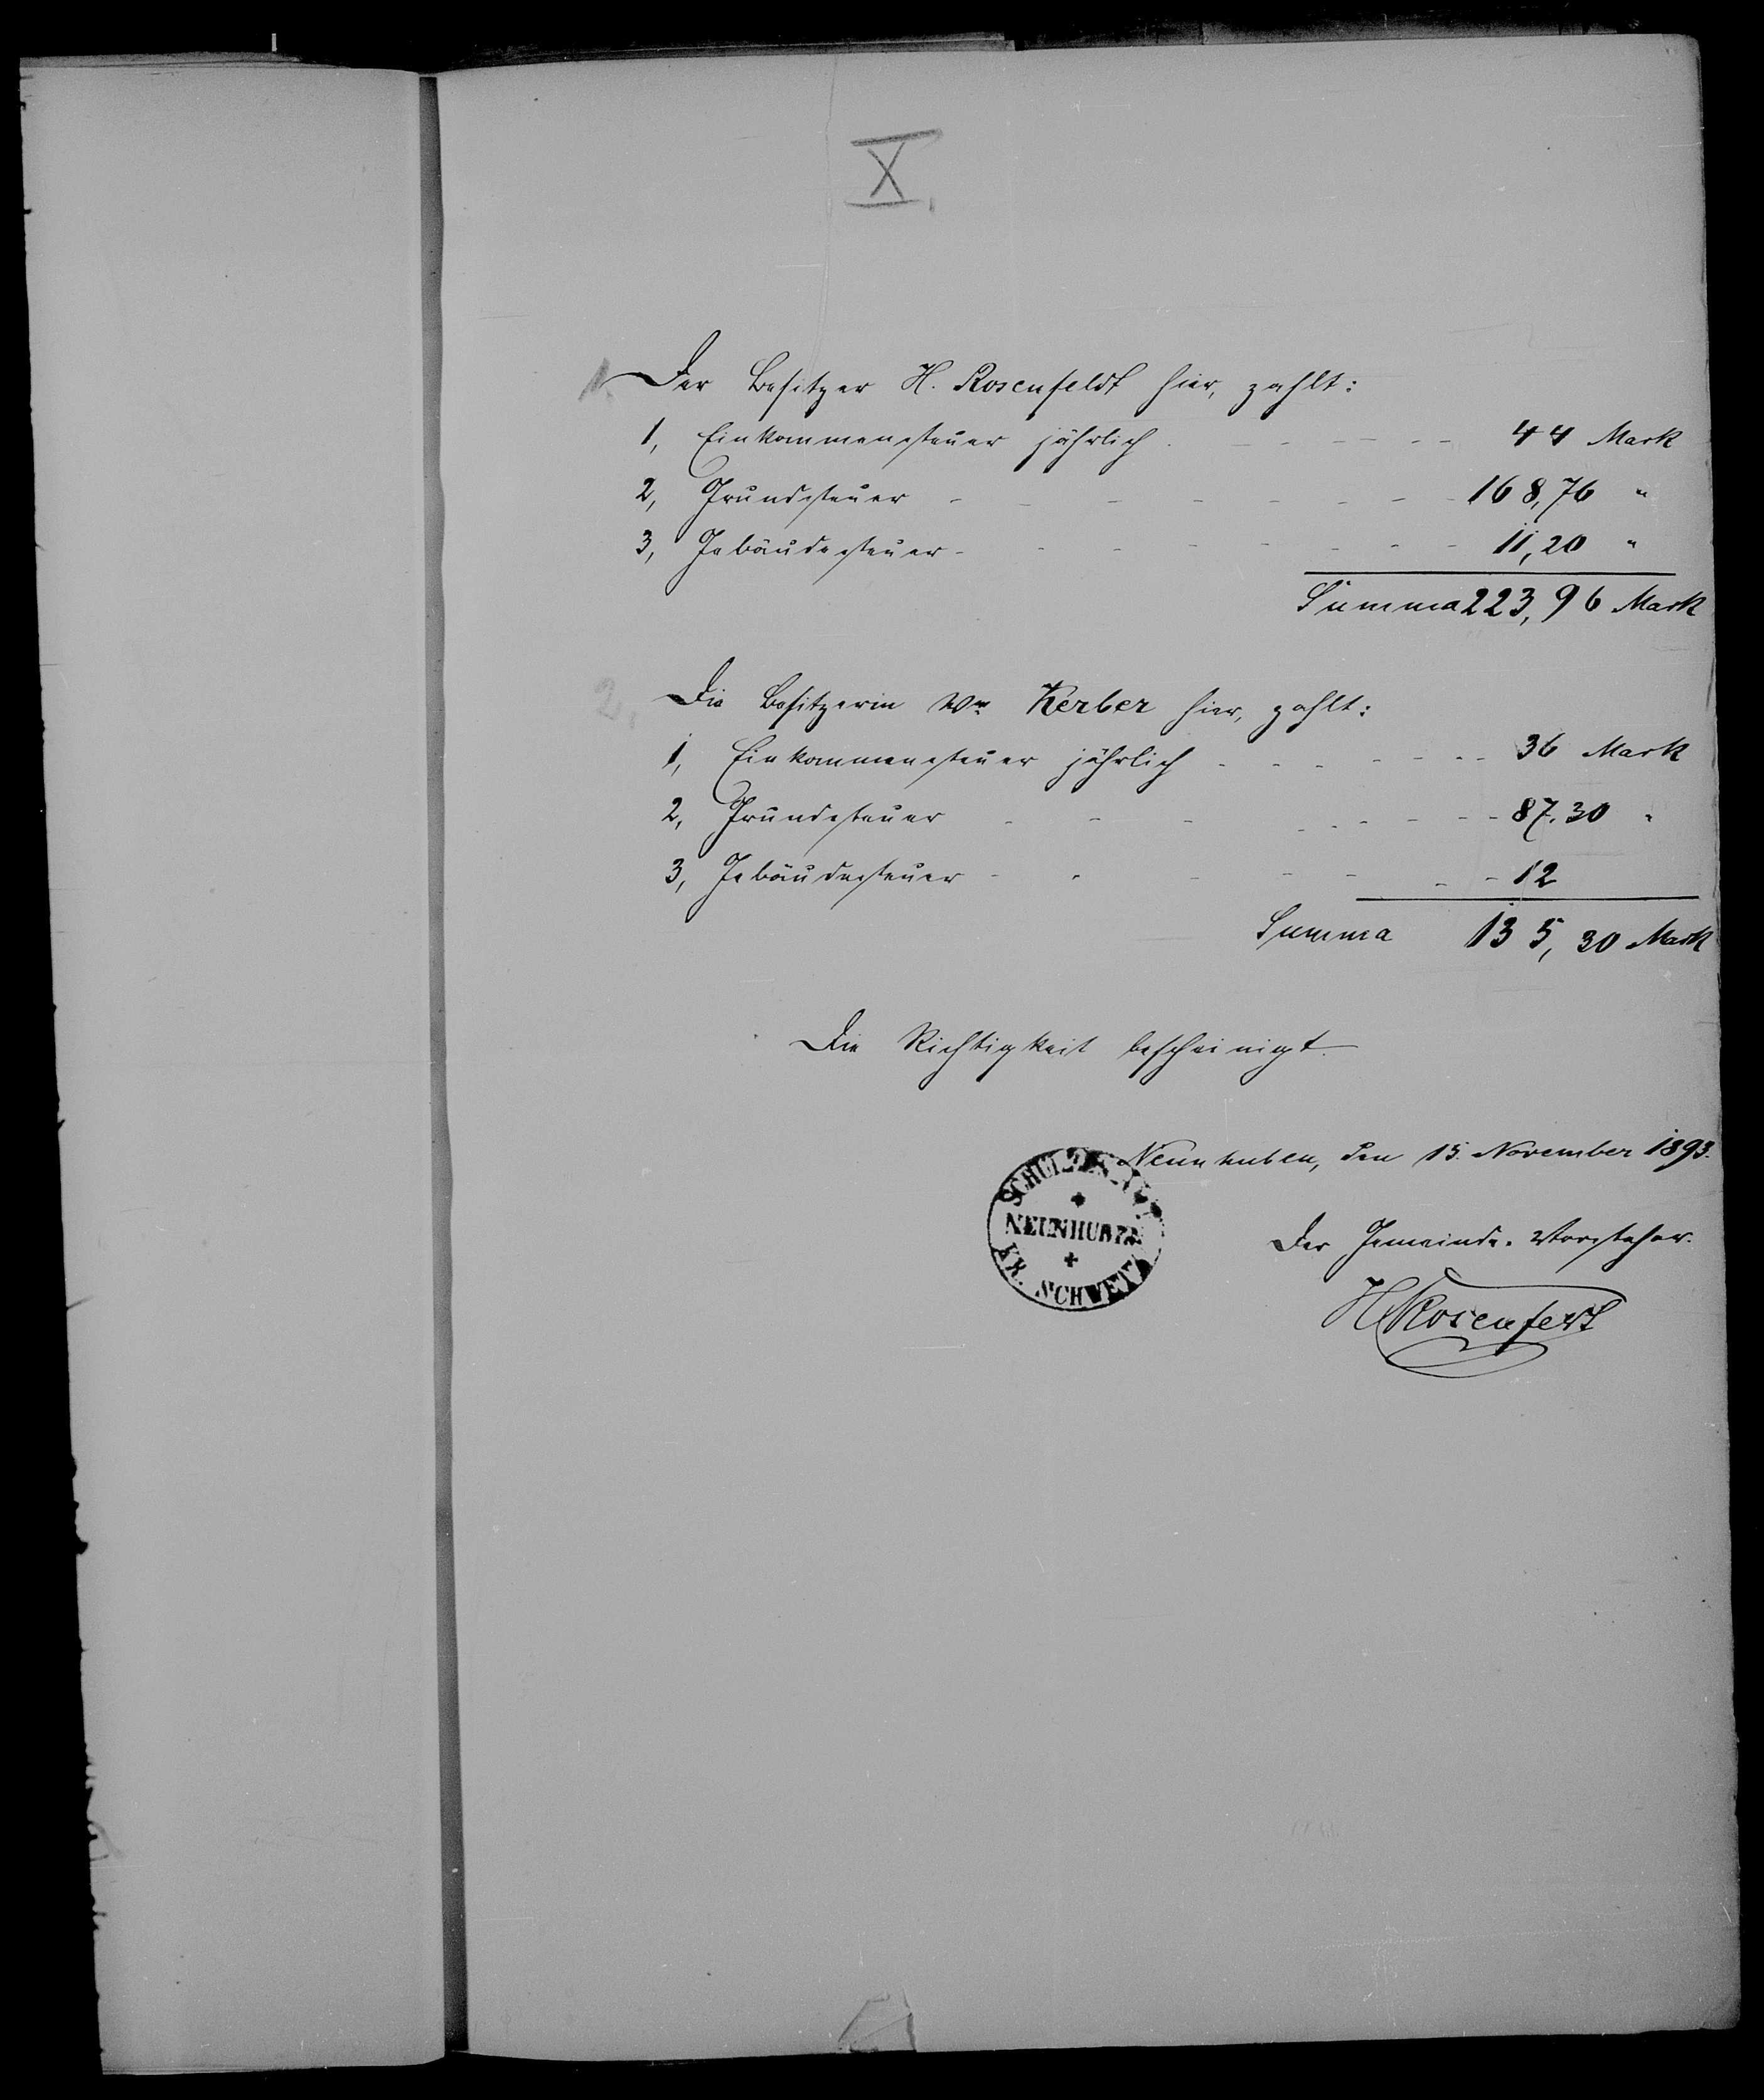 X.
1. Der Besitzer H. Rosenfeldt hier, zahlt:
1, Einkommensteuer jährlich - - - - - 44 Mark
2, Grundsteuer - - - - - - - - 168,76 "
3, Gebäudesteuer - - - - - - - - 11,20 "
Summa 223,96 Mark
2, Die Besitzerin Ww. Kerber hier, zahlt:
1, Einkommensteuer jährlich - - - - - - - 36 Mark
2, Grundsteuer - - - - - - - - 87.30 "
3, Gebäudesteuer - - - - - - - 12
Summa 135,30 Mark
Die Richtigkeit bescheinigt.
Neunhuben, den 15. November 1893.
SCHULZEN-AMT
NEUNHUBEN
KR. SCHWETZ
Der Gemeinde-Vorsteher.
H Rosenfeldt